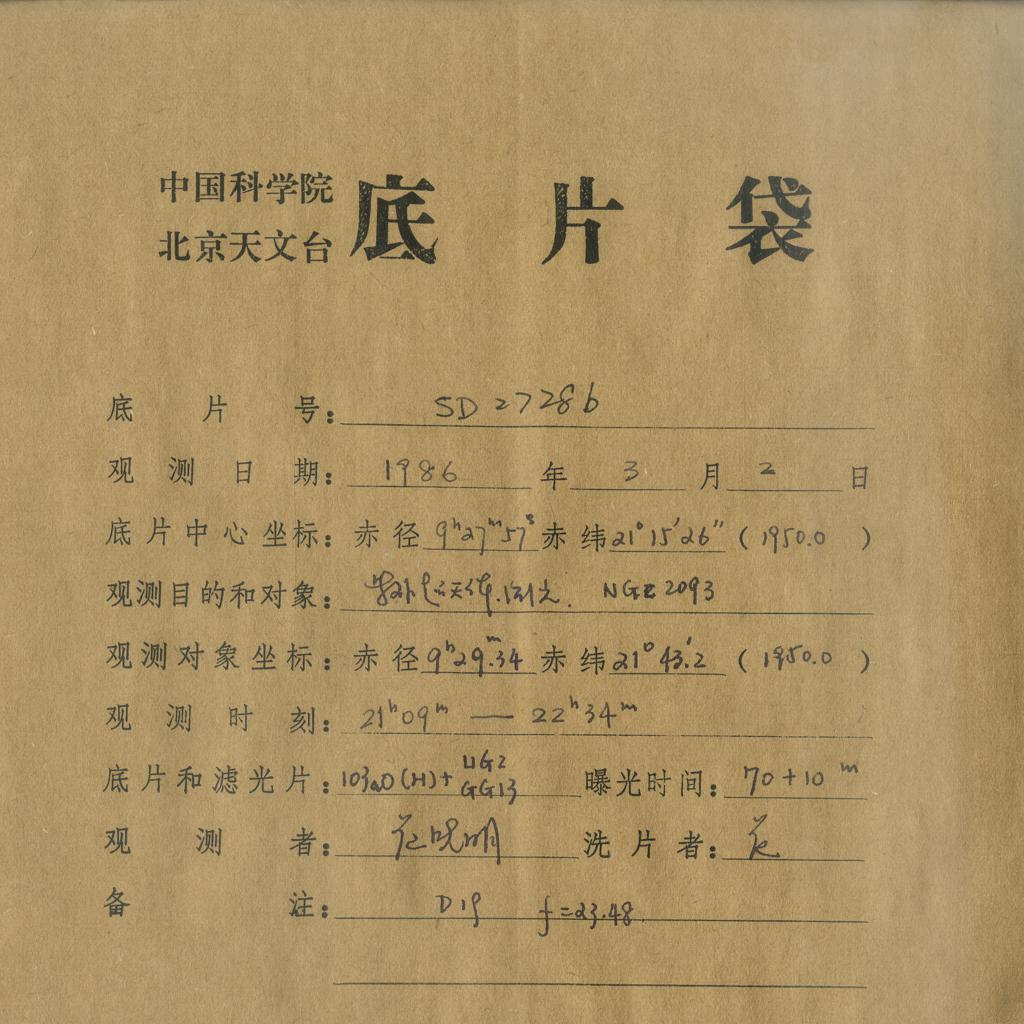 中国科学院
北京天文台 底片袋
底片号: SD 27286
观测日期: 1986 年 3 月 2 日
底片中心坐标: 赤径 9ʰ27ᵐ57ˢ 赤纬 21°15′26″ (1950.0)
观测目的和对象: 紫外超天体.测光. NGC 2093
观测对象坐标: 赤径 9ʰ29ᵐ.34 赤纬 21°43′.2 (1950.0)
观测时刻: 21ʰ09ᵐ — 22ʰ34ᵐ
底片和滤光片: 103aO(H)+ UG2 GG13 曝光时间: 70+10ᵐ
观测者: 晓明 洗片者:
备注: D19 f=23.48